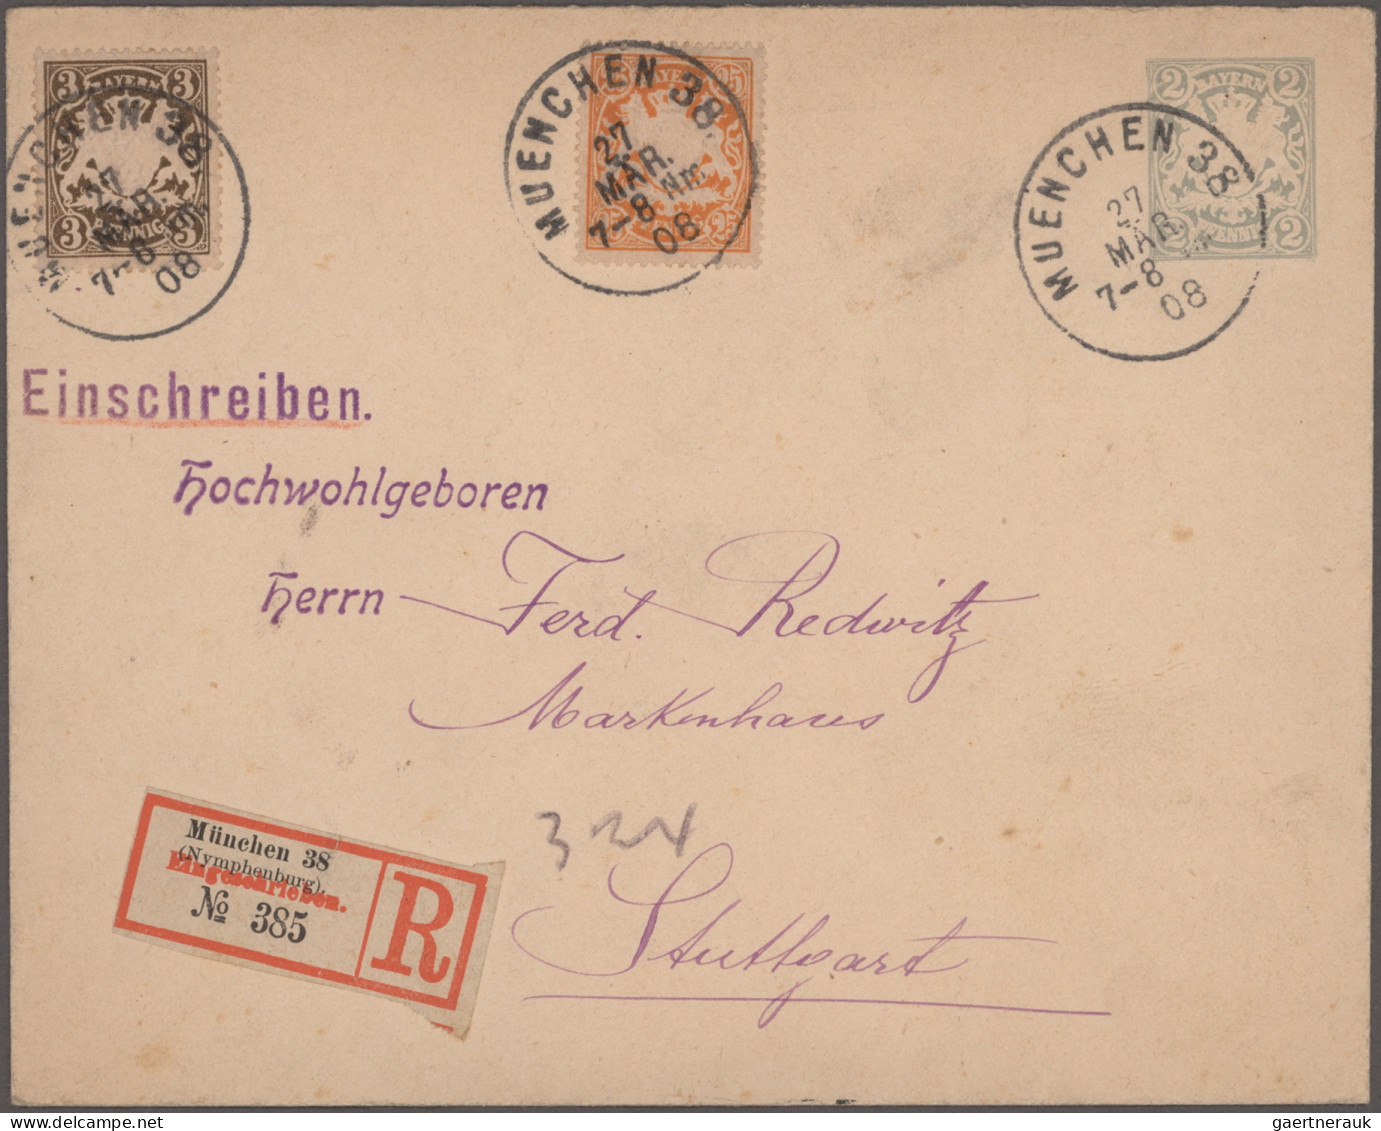 3 BAYERN 3
3 PFENNIG 3
MUENCHEN 38
27
MÄR.
7-8
08
25
25 25
MUENCHEN 38.
27
MÄR.
7-8 Nm.
08
2 BAYERN 2
2 PFENNIG 2
MUENCHEN 38
27
MÄR.
7-8
08
Einschreiben.
Hochwohlgeboren
Herrn Ferd. Redwitz
Markenhaus
324
Stuttgart
München 38
(Nymphenburg).
Eingeschrieben.
№ 385
R
gaertnerauk